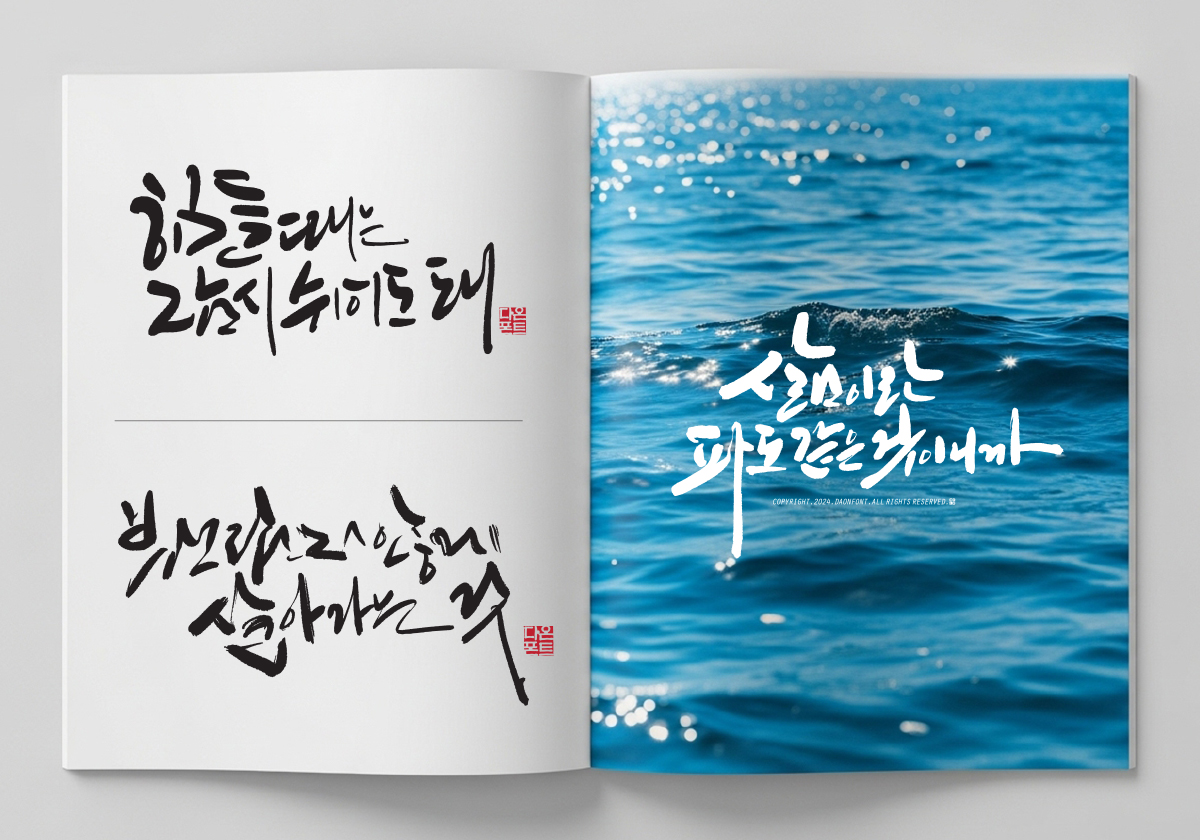 힘들 때는
잠시 쉬어도 돼
다온
폰트
부끄럽지 않게
살아가는 것
다온
폰트
삶이란
파도 같은 것이니까
COPYRIGHT. 2024. DAONFONT. ALL RIGHTS RESERVED.